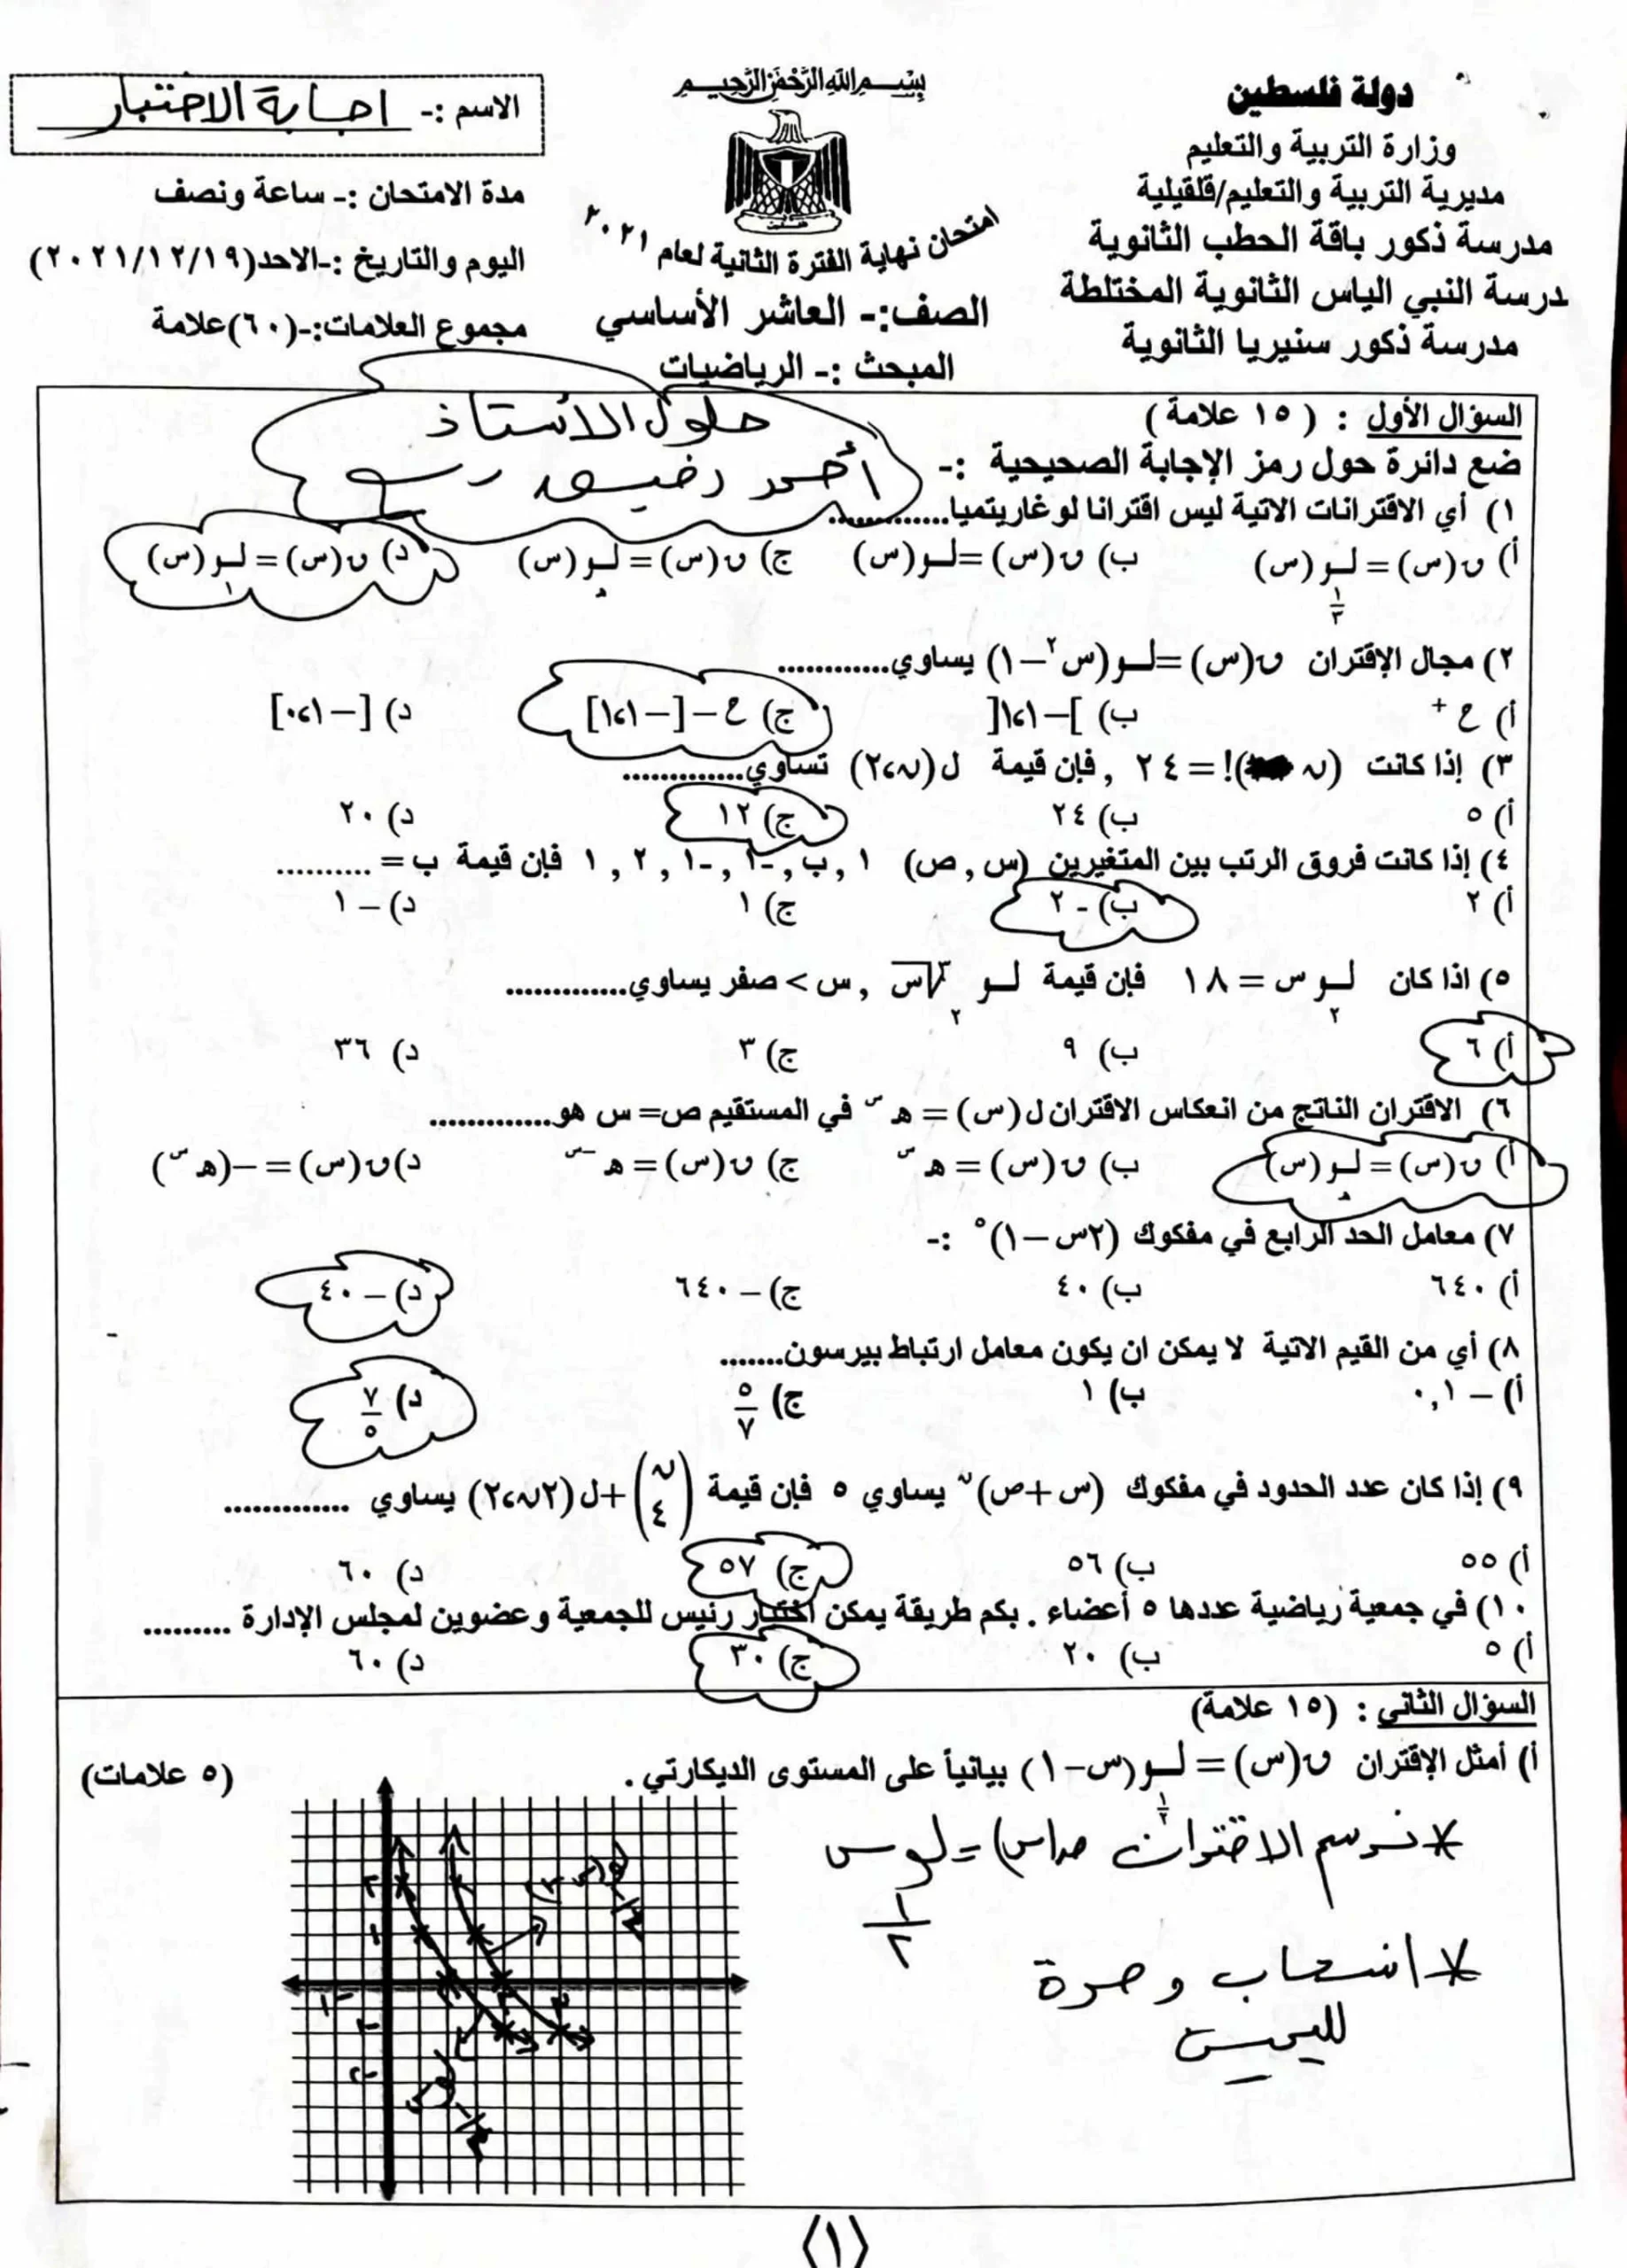 بسم الله الرحمن الرحيم
دولة فلسطين
وزارة التربية والتعليم
مديرية التربية والتعليم/قلقيلية
مدرسة ذكور باقة الحطب الثانوية
درسة النبي الياس الثانوية المختلطة
مدرسة ذكور سنيريا الثانوية
فلسطين
امتحان نهاية الفترة الثانية لعام ٢٠٢١
الصف:- العاشر الأساسي
المبحث :- الرياضيات
الاسم :- اجابة الاختبار
مدة الامتحان :- ساعة ونصف
اليوم والتاريخ :-الاحد(٢٠٢١/١٢/١٩)
مجموع العلامات:-(٦٠)علامة
السؤال الأول : (١٥ علامة)
حلول الأستاذ
أحمد رفيق
ضع دائرة حول رمز الإجابة الصحيحية :-
١) أي الاقترانات الاتية ليس اقترانا لوغاريتميا.............
أ) ن(س) = لــو<sub>١/٣</sub>(س) ب) ن(س) =لــو(س) ج) ن(س) = لــو<sub>هـ</sub>(س) د) ن(س) = لــو<sub>١</sub>(س)
٢) مجال الإقتران ن(س) =لــو(س²−١) يساوي............
أ) ح⁺ ب) ]−١،١[ ج) ح−[−١،١] د) [−١،٠]
٣) إذا كانت (ن)! = ٢٤ , فإن قيمة ل(ن،٢) تساوي.............
أ) ٥ ب) ٢٤ ج) ١٢ د) ٢٠
٤) إذا كانت فروق الرتب بين المتغيرين (س , ص) ١ , ب, -١ , -١ , ٢ , ١ فإن قيمة ب = ..........
أ) ٢ ب) - ٢ ج) ١ د) – ١
٥) اذا كان لــو<sub>٢</sub> س = ١٨ فإن قيمة لــو<sub>٢</sub> ∛س , س > صفر يساوي.............
أ) ٦ ب) ٩ ج) ٣ د) ٣٦
٦) الاقتران الناتج من انعكاس الاقتران ل(س) = هـ<sup>س</sup> في المستقيم ص= س هو.............
أ) ن(س) = لــو<sub>هـ</sub>(س) ب) ن(س) = هـ<sup>س</sup> ج) ن(س) = هـ<sup>−س</sup> د)ن(س) = −(هـ<sup>س</sup>)
٧) معامل الحد الرابع في مفكوك (٢س−١)<sup>٥</sup> :-
أ) ٦٤٠ ب) ٤٠ ج) – ٦٤٠ د) – ٤٠
٨) أي من القيم الاتية لا يمكن ان يكون معامل ارتباط بيرسون.......
أ) – ٠,١ ب) ١ ج) ٥/٧ د) ٧/٥
٩) إذا كان عدد الحدود في مفكوك (س+ص)<sup>ن</sup> يساوي ٥ فإن قيمة (ن ٤)+ل(٢ن،٢) يساوي .............
أ) ٥٥ ب) ٥٦ ج) ٥٧ د) ٦٠
١٠) في جمعية رياضية عددها ٥ أعضاء . بكم طريقة يمكن اختيار رئيس للجمعية وعضوين لمجلس الإدارة .........
أ) ٥ ب) ٢٠ ج) ٣٠ د) ٦٠
السؤال الثاني : (١٥ علامة)
أ) أمثل الإقتران ن(س) = لــو<sub>١/٢</sub>(س−١) بيانياً على المستوى الديكارتي . (٥ علامات)
* نرسم الاقتران هـ(س) = لو<sub>١/٢</sub> س
* انسحاب وحدة
لليمين
٢
١
١- ١ ٢ ٣
١-
٢-
(١)